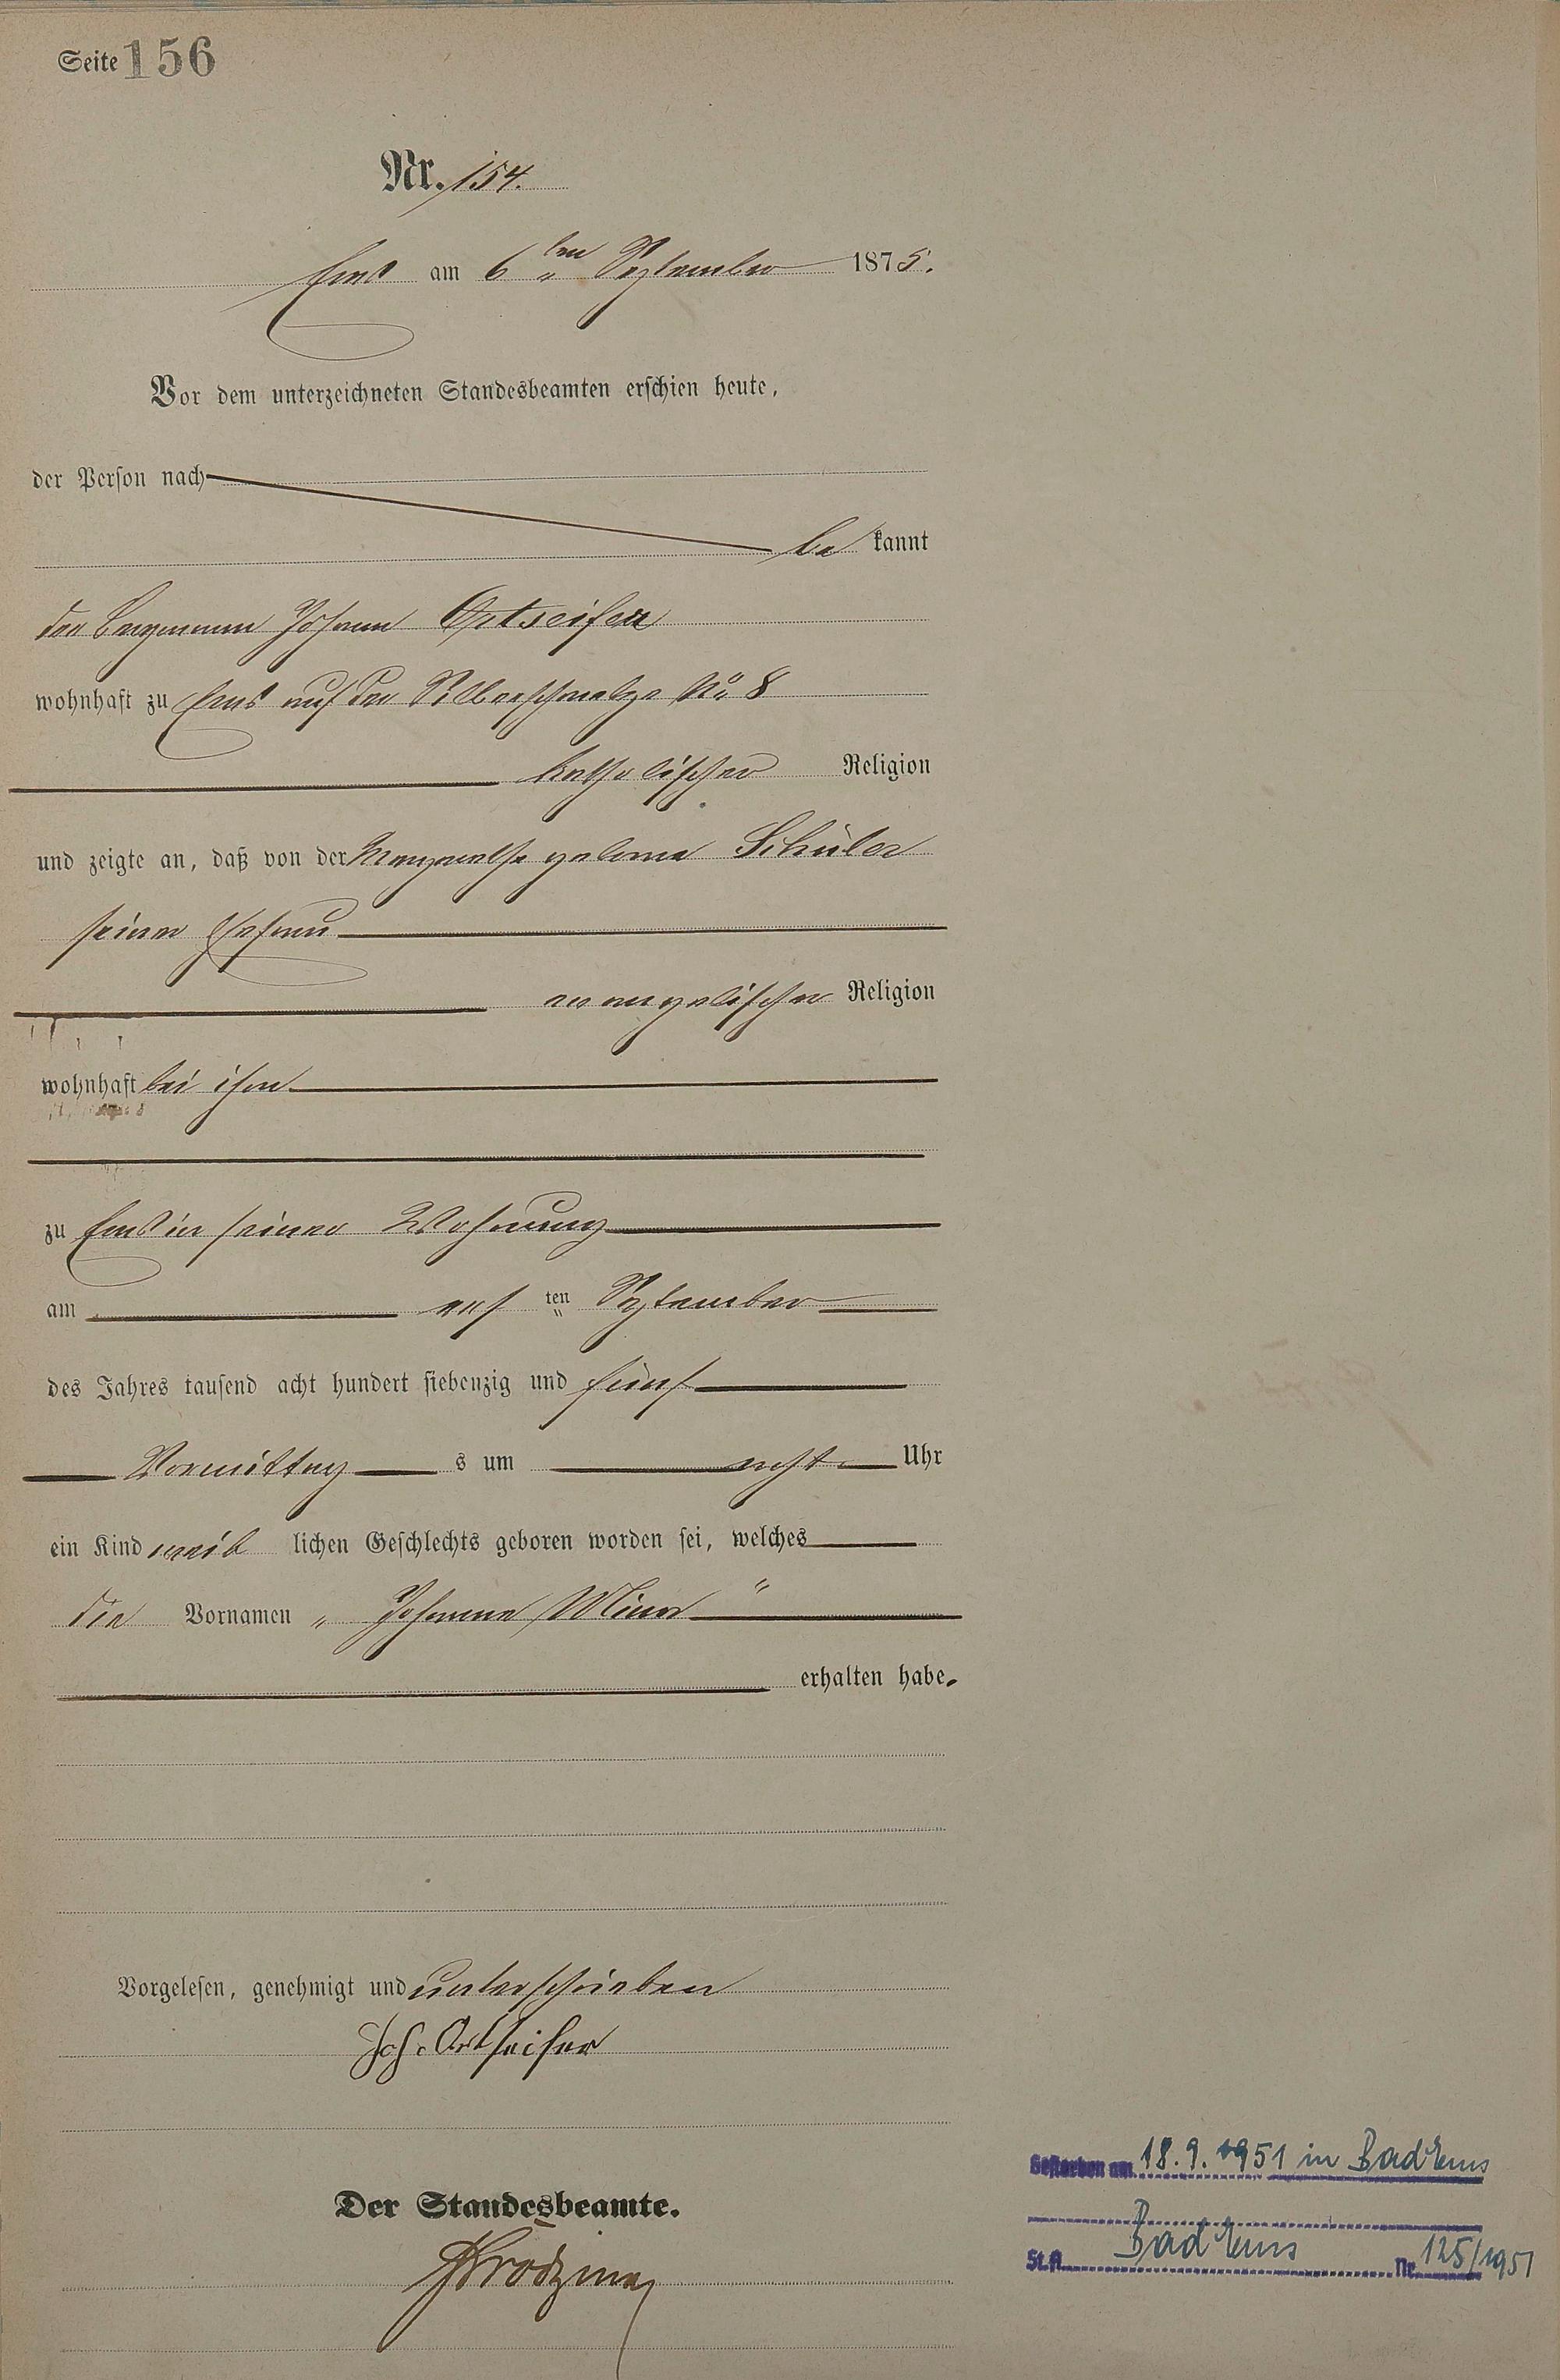 Seite 156
Nr. 154.
Ems am 6ten September 1875.
Vor dem unterzeichneten Standesbeamten erschien heute,
der Person nach
be kannt
der Bergmann Johann Ortseifen
wohnhaft zu Ems auf der Silberschmelze No 8
katholischer Religion
und zeigte an, daß von der Margarethe geborne Schüler
seiner Ehefrau
evangelischer Religion
wohnhaft bei ihm
zu Ems in seiner Wohnung
am ten September
des Jahres tausend acht hundert siebenzig und fünf
Vormittag s um acht Uhr
ein Kind weib lichen Geschlechts geboren worden sei, welches
die Vornamen „ Johanna Mina "
erhalten habe.
Vorgelesen, genehmigt und unterschrieben
Joh. Ortseifen
Der Standesbeamte.
Gestorben am 18.9.1951 in Bad Ems
St.A. Bad Ems Nr. 125/1951